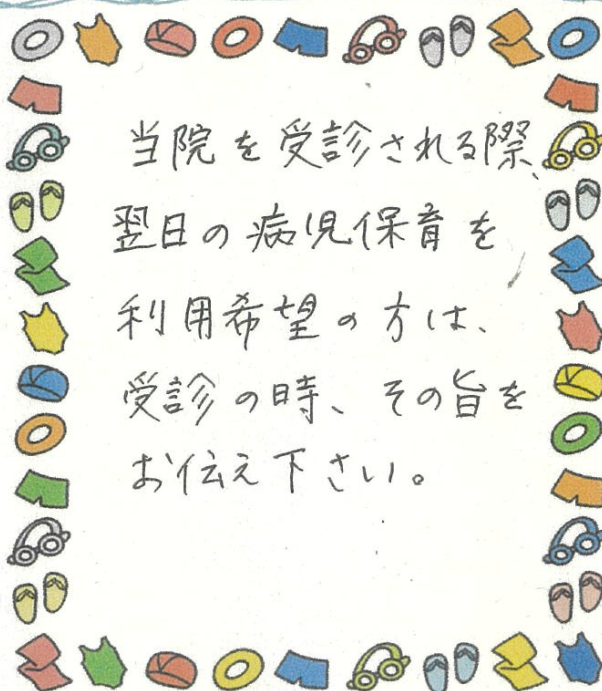 当院を受診される際、
翌日の病児保育を
利用希望の方は、
受診の時、その旨を
お伝え下さい。